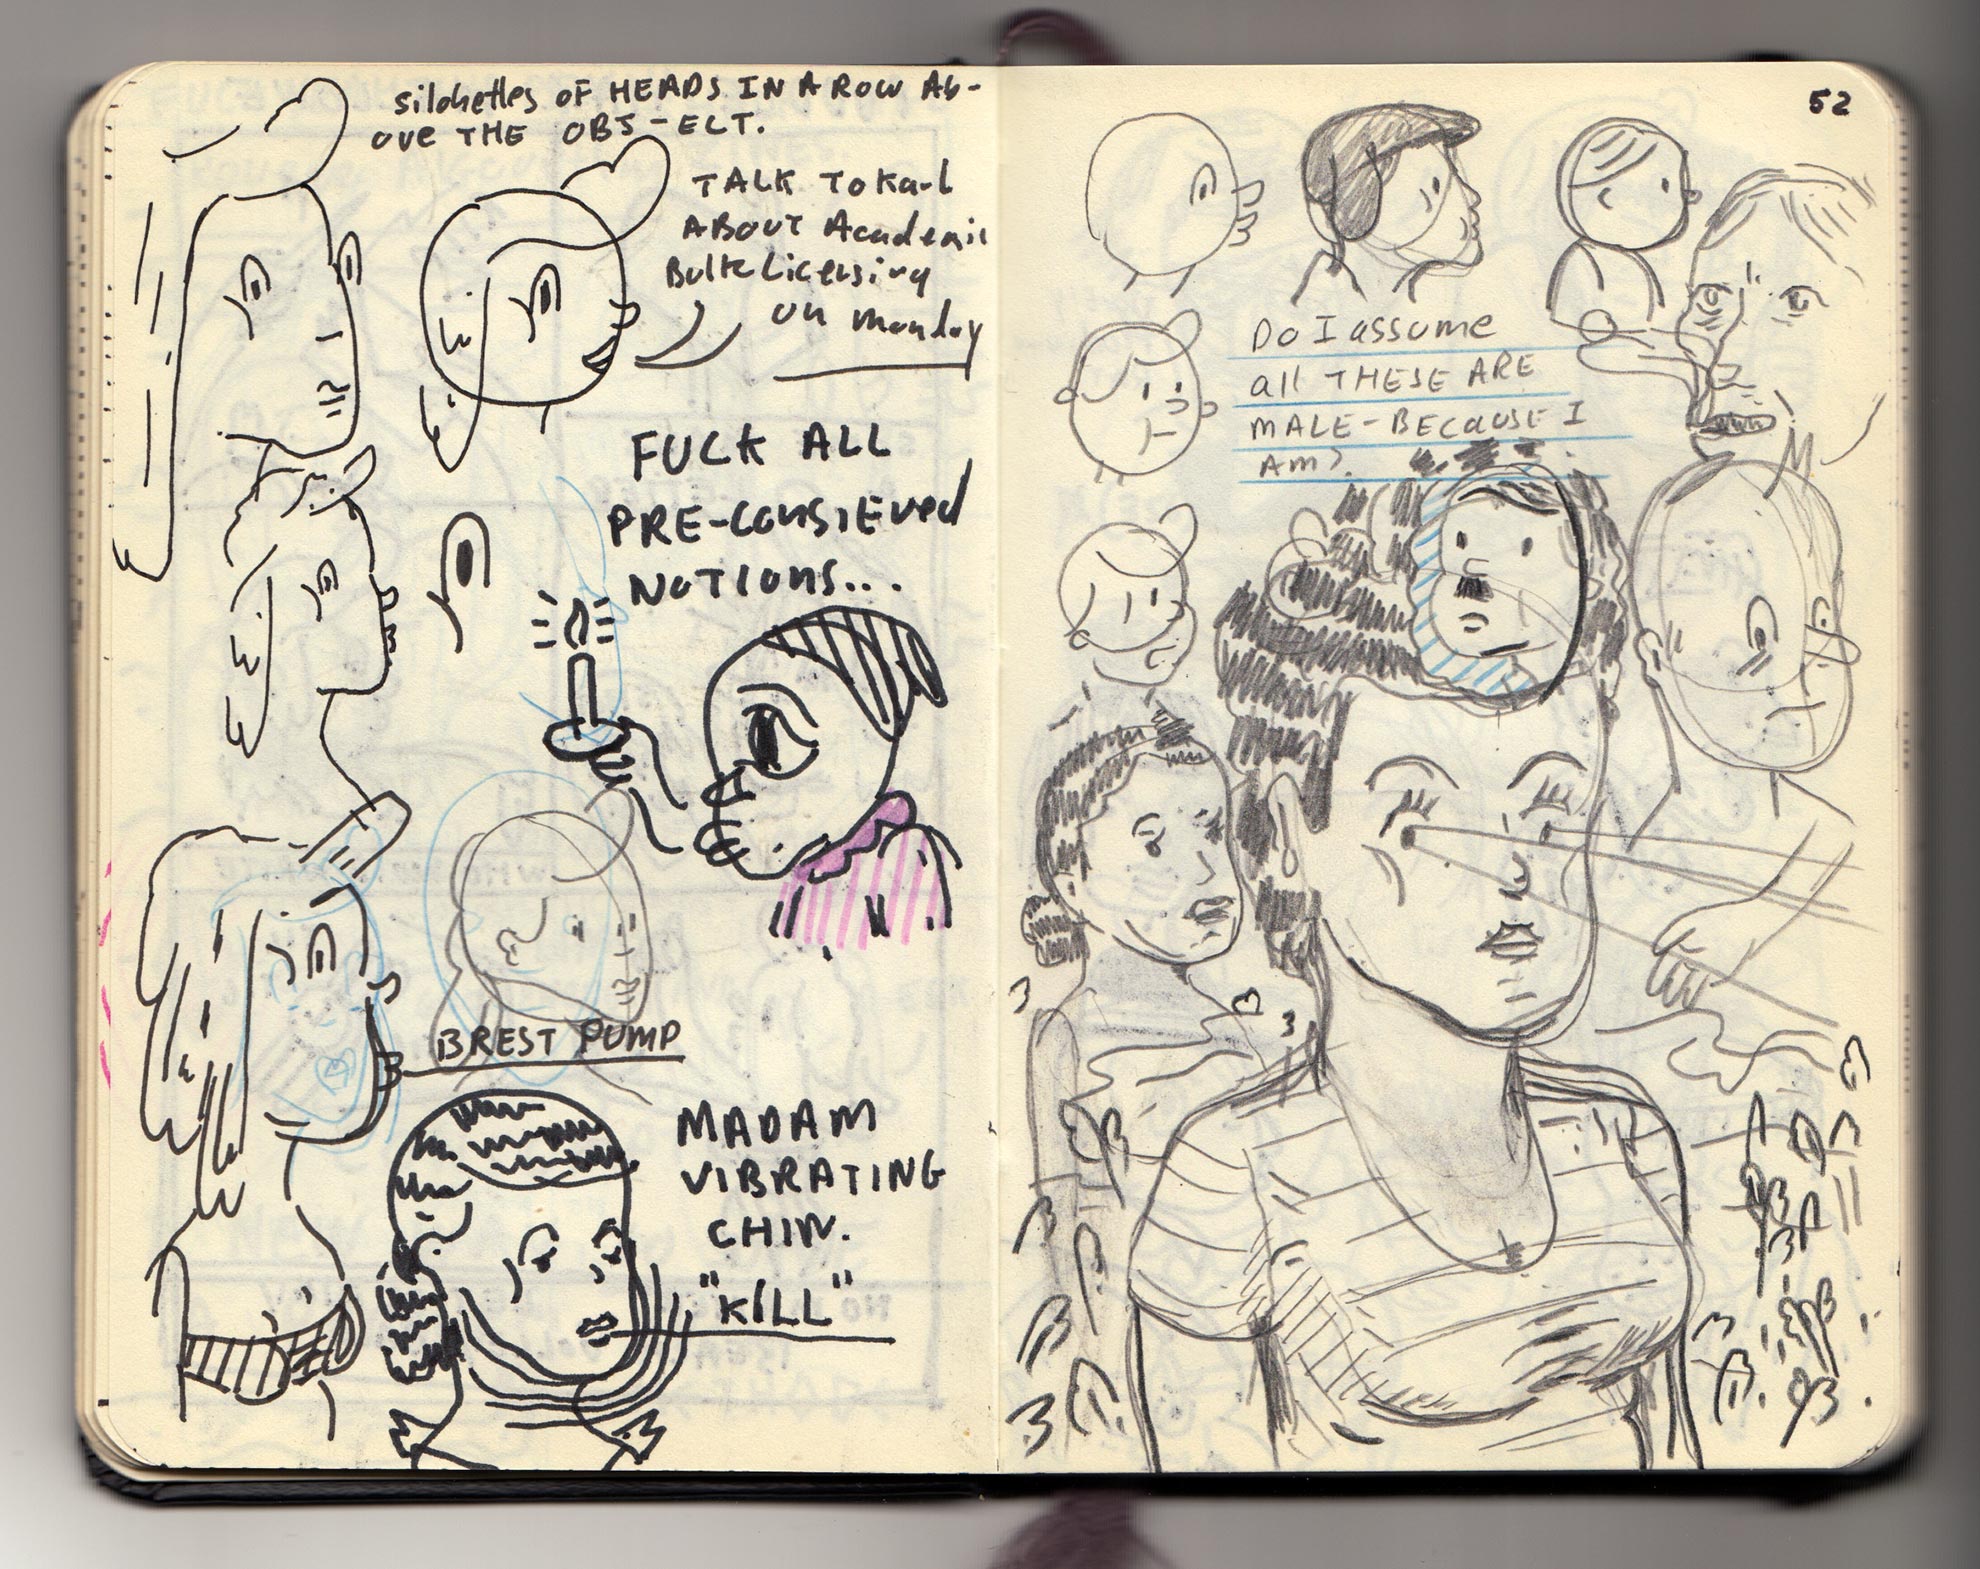 silohettes OF HEADS IN A ROW AB-
OVE THE OBJ-ECT.
TALK TO Karl
ABOUT Academic
Bulk Licensing
on monday
FUCK ALL
PRE-CONSIEVED
NOTIONS...
BREST PUMP
MADAM
VIBRATING
CHIN.
"KILL"
52
Do I assume
all THESE ARE
MALE-BECAUSE I
AM?